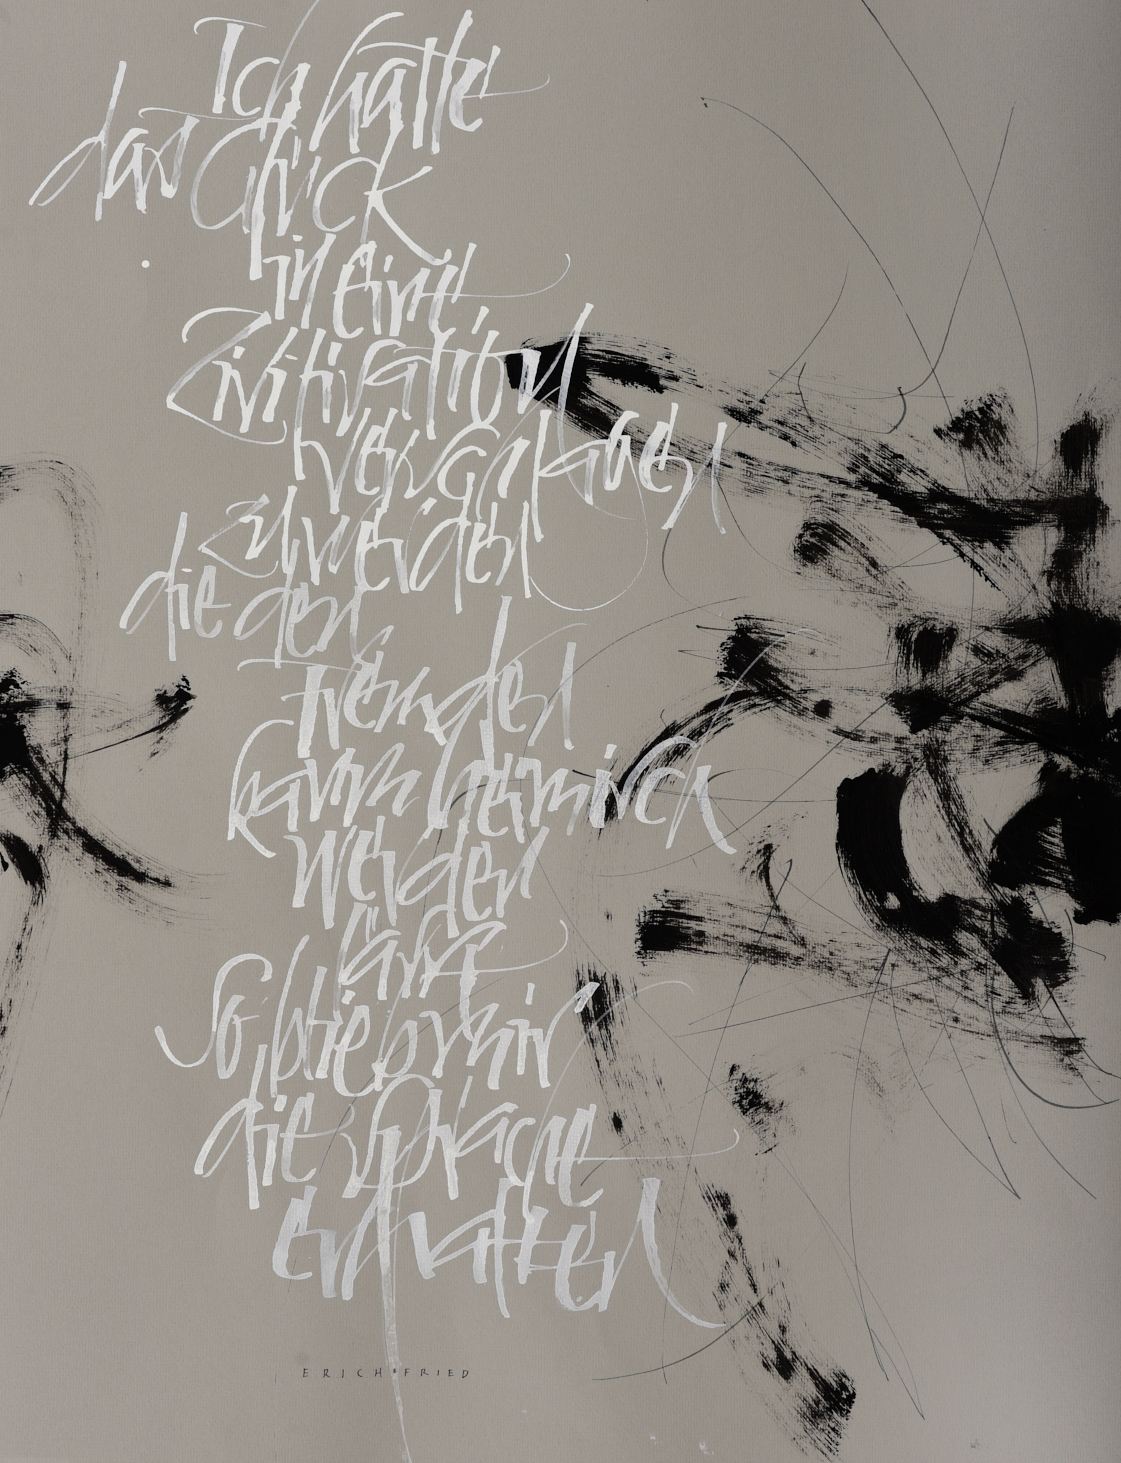 Ich hatte
das Glück
in eine
Zivilisation
verschlagen
zu werden
die den
Fremden
kaum heimisch
werden
lässt
So blieb mir
die Sprache
erhalten
ERICH FRIED